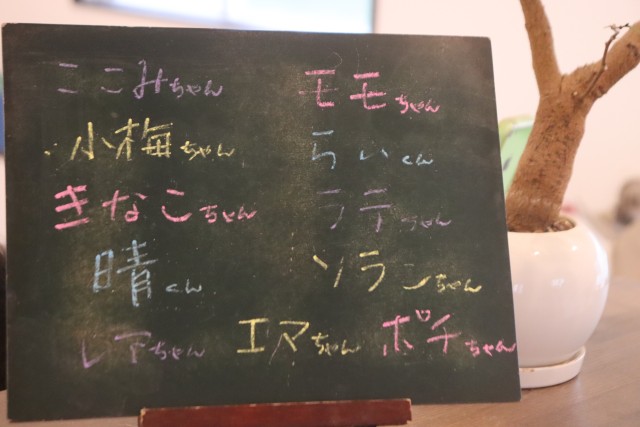 ここみちゃん モモちゃん
小梅ちゃん らいくん
きなこちゃん ララちゃん
晴くん ソランちゃん
レアちゃん エマちゃん ポチちゃん